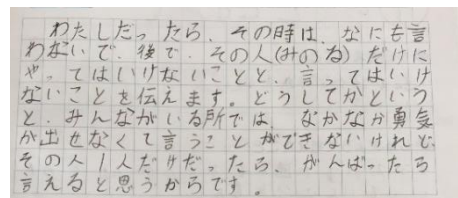 わたしだったら、その時は、なにも言
わないで、後で、その人(みのる)だけに
やってはいけないことと、言ってはいけ
ないことを伝えます。どうしてかという
と、みんながいる所では、なかなか勇気
が出せなくて言うことができないけれど、
その人1人だけだったら、がんばったら
言えると思うからです。